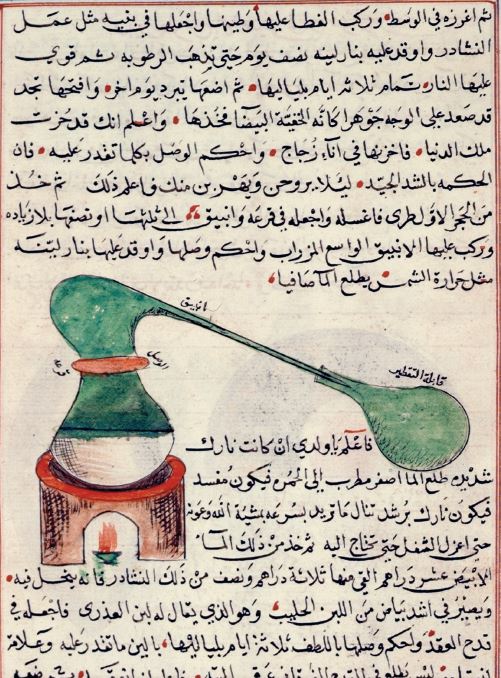 ثم اغرزه في الوسط وركب الغطا عليها وطينها واجعلها في بقيه مثل عمل
النشادر واوقد عليه بنار لينه نصف يوم حتى تذهب الرطوبه ثم قوي
عليها النار تمام ثلاثه ايام بلياليها ثم اضعها تبرد يوم اخر وافتحها تجد
قد صعد على الوجه جوهرا كانه الفضة البيضا فخذها واعلم انك قد حزت
ملك الدنيا فاخزنها في اناء زجاج واحكم الوصل بكلما تقدر عليه فان
احكمه بالشد الجيد ليلا يروحن ويهربن منك فاعلم ذلك ثم خذ
من الحجر الاول طري فاغسله واجعله في قرعه وانبيق الى ثلثها او نصفها بلا زياده
وركب عليها الانبيق الواسع المزراب واحكم وصلها واوقد عليها بنار لينه
مثل حرارة الشمس يطلع الما صافيا
انبيق
قابلة التقطير
الوصل
قرعه
فاعلم يا ولدي ان كانت نارك
شديده طلع الما اصفر مطرب الى الحمره فيكون مفسد
فيكون نارك برشد تنال ما تريد بسرعه بمشية الله وعونه
حتى اعزل الثفل حتى تحتاج اليه ثم خذ من ذلك الما
الابيض عشر دراهم القي منها ثلاثة دراهم ونصف من ذلك النشادر فانه ينحل فيه
ويصير في اشد بياض من اللبن الحليب وهو الذي يقال له لبن العذرى فاجعله في
قدح العقد واحكم وصلها باللطف ثلاثة ايام بلياليها بالين ما تقدر عليه وعلامة